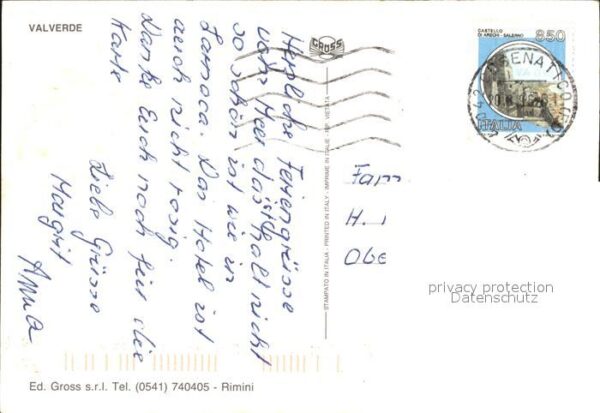 VALVERDE
Herzliche Feriengrüsse
vom Meer das ist halt nicht
so schön ist wie in
Lanzoca. Das Hotel ist
auch nicht rosig.
Danke Euch noch für die
Karte
Liebe Grüsse
Margrit
Anna
GROSS
STAMPATO IN ITALIA - PRINTED IN ITALY - IMPRIME EN ITALIE
VIETATA
CASTELLO
DI ARECHI - SALERNO
850
ITALIA
CESENATICO
Fam
H.
Obe
privacy protection
Datenschutz
Ed. Gross s.r.l. Tel. (0541) 740405 - Rimini